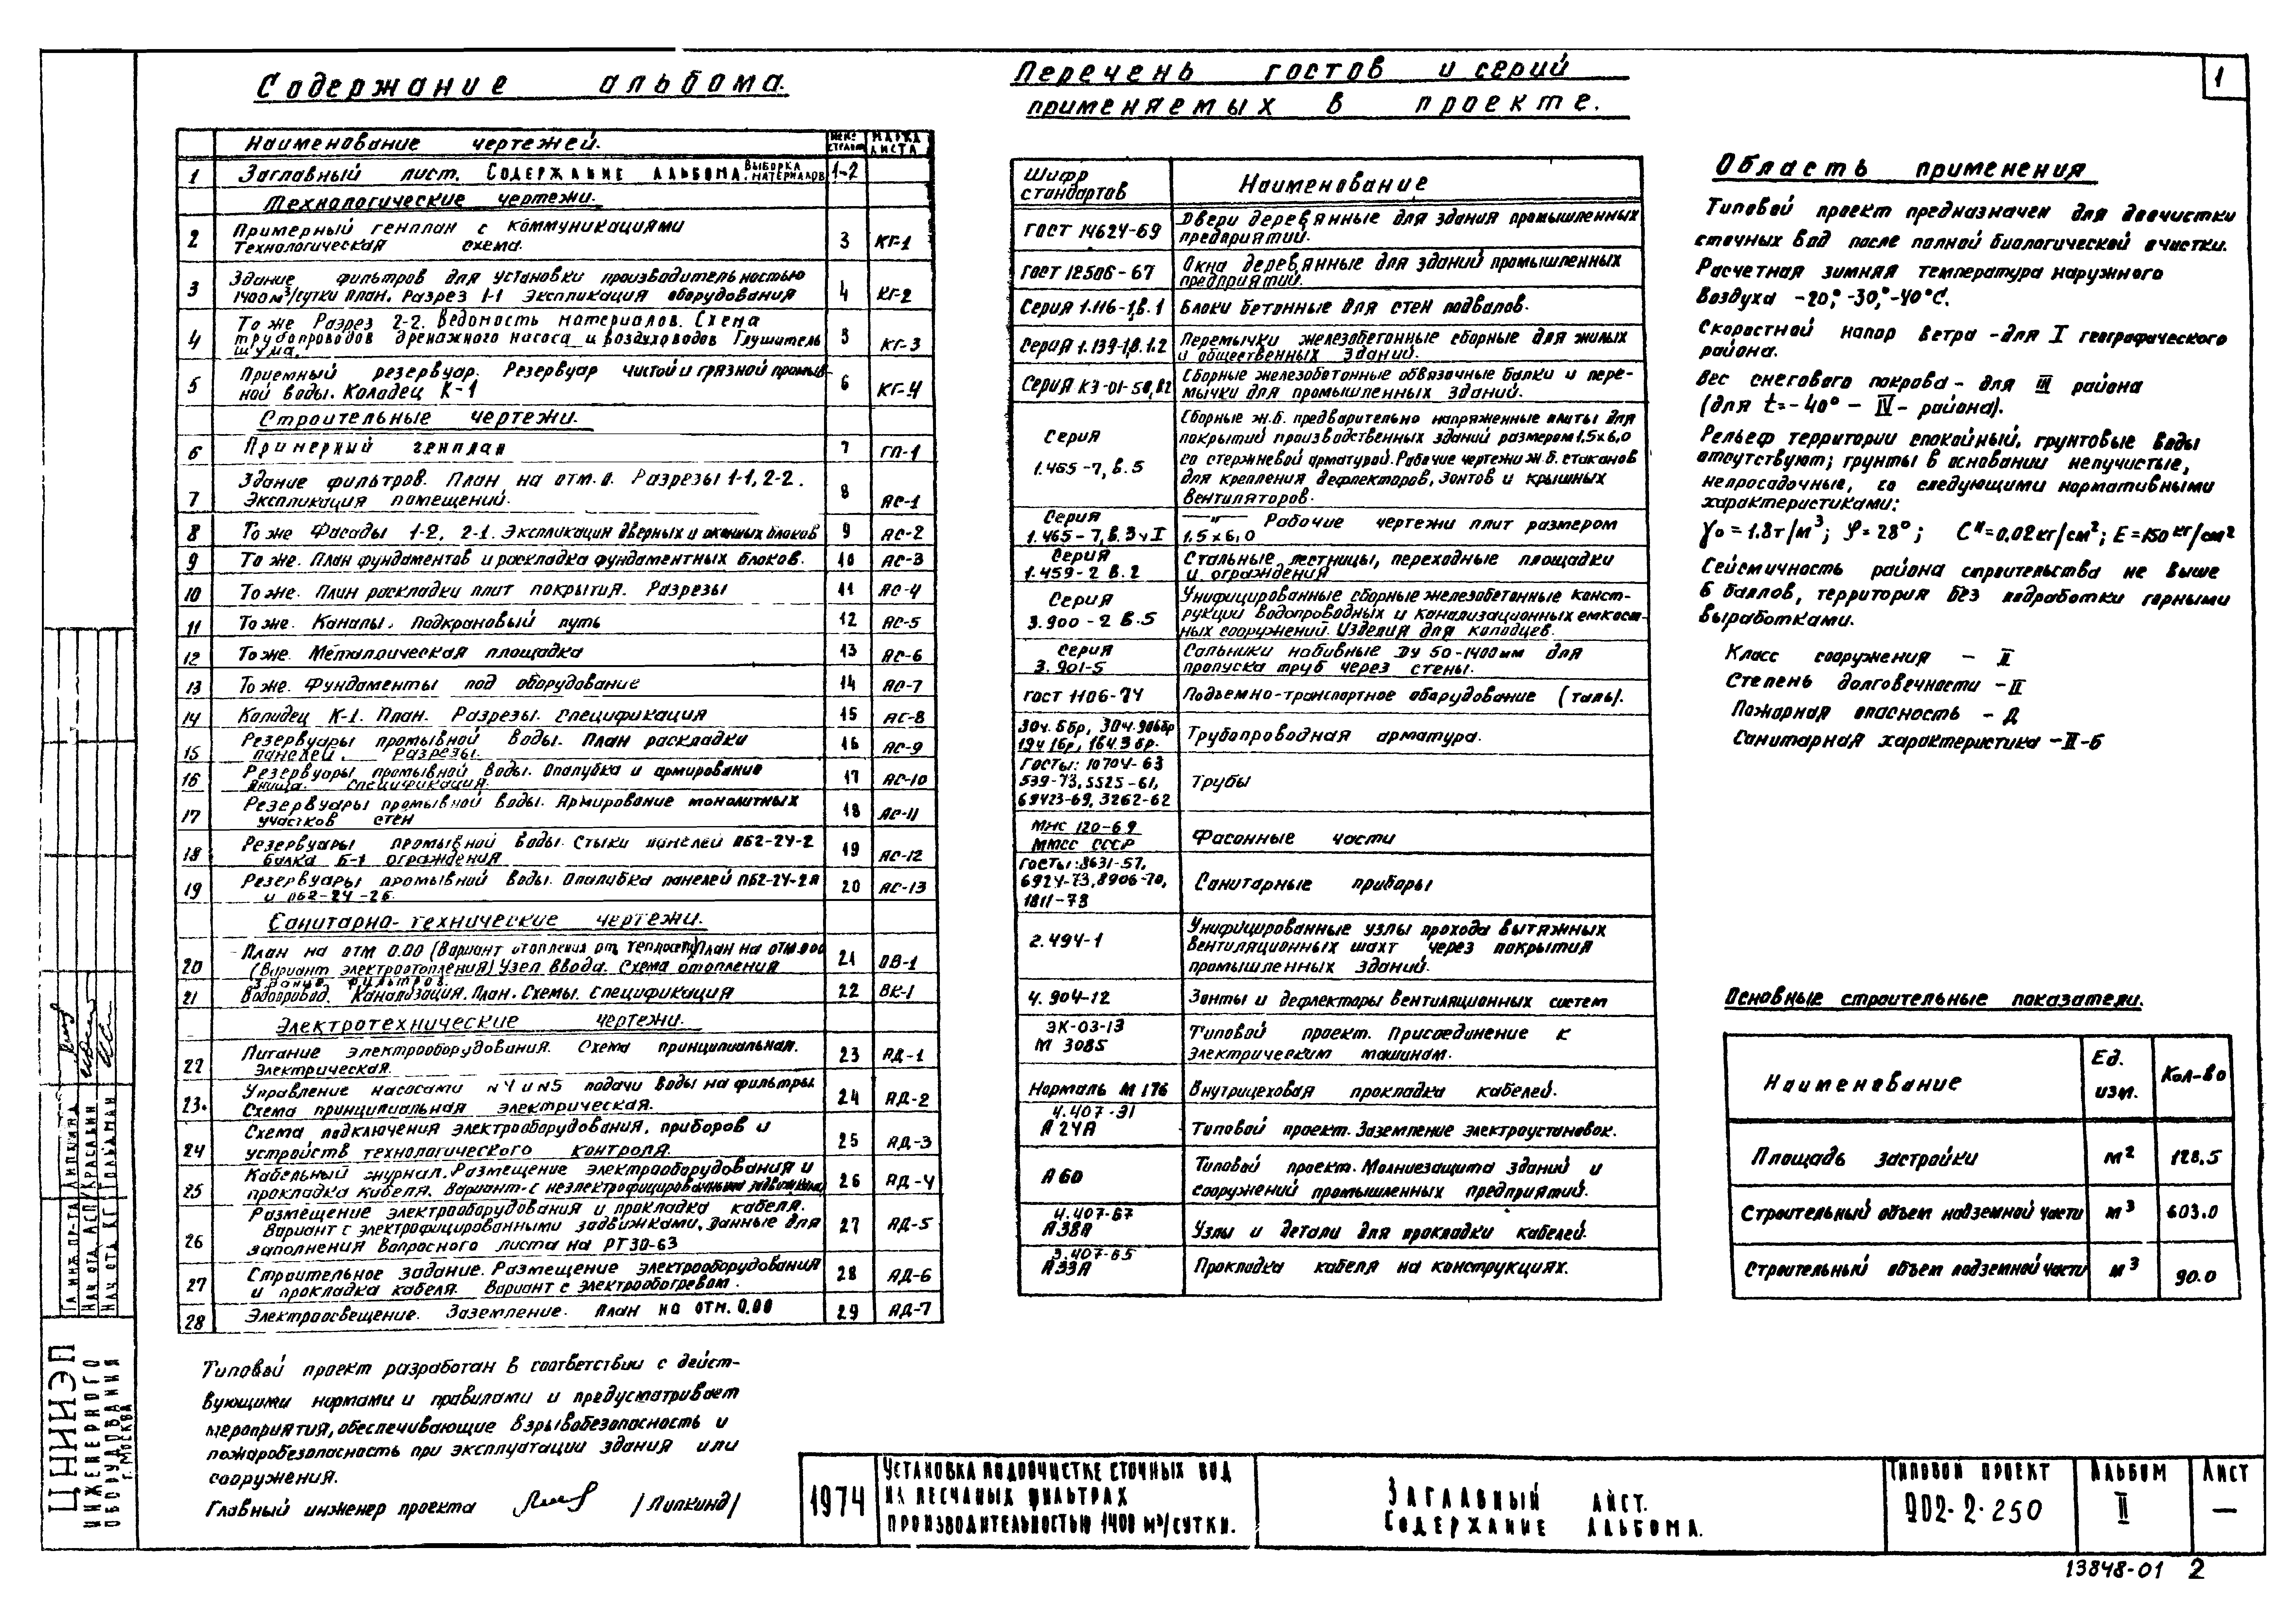 1
Содержание альбома.
Наименование чертежей.
МАРКА ЛИСТА
1 Заглавный лист. Содержание альбома. Выборка материалов 1-2
Технологические чертежи.
2 Примерный генплан с коммуникациями
Технологическая схема. 3 КГ-1
3 Здание фильтров для установки производительностью
1400 м³/сутки план. Разрез 1-1 Экспликация оборудования 4 КГ-2
4 То же Разрез 2-2. Ведомость материалов. Схема
трубопроводов дренажного насоса и воздуховодов Глушитель
шума. КГ-3
5 Приемный резервуар. Резервуар чистой и грязной промыв-
ной воды. Колодец К-1 6 КГ-4
Строительные чертежи.
6 Примерный генплан 7 ГП-1
7 Здание фильтров. План на отм.0. Разрезы 1-1, 2-2.
Экспликация помещений. 8 АС-1
8 То же Фасады 1-2, 2-1. Экспликация дверных и оконных блоков 9 АС-2
9 То же. План фундаментов и раскладка фундаментных блоков. 10 АС-3
10 То же. План раскладки плит покрытия. Разрезы 11 АС-4
11 То же. Каналы. Подкрановый путь 12 АС-5
12 То же. Металлическая площадка 13 АС-6
13 То же. Фундаменты под оборудование 14 АС-7
14 Колодец К-1. План. Разрезы. Спецификация 15 АС-8
15 Резервуары промывной воды. План раскладки
панелей. Разрезы. 16 АС-9
16 Резервуары промывной воды. Опалубка и армирование
днища. Спецификация. 17 АС-10
17 Резервуары промывной воды. Армирование монолитных
участков стен 18 АС-11
18 Резервуары промывной воды. Стыки панелей ПБ2-24-2
балка Б-1 ограждения 19 АС-12
19 Резервуары промывной воды. Опалубка панелей ПБ2-24-2а
и ПБ2-24-2б. 20 АС-13
Санитарно-технические чертежи.
20 План на отм 0.00 (Вариант отопления от теплосети) План на отм. 0.00
(Вариант электроотопления) Узел ввода. Схема отопления 21 ОВ-1
Здание фильтров.
21 Водопровод. Канализация. План. Схемы. Спецификация 22 ВК-1
Электротехнические чертежи.
22 Питание электрооборудования. Схема принципиальная.
Электрическая. 23 АД-1
23. Управление насосами N4 и N5 подачи воды на фильтры.
Схема принципиальная электрическая. 24 АД-2
24 Схема подключения электрооборудования, приборов и
устройств технологического контроля. 25 АД-3
25 Кабельный журнал. Размещение электрооборудования и
прокладка кабеля. Вариант с неэлектрофицированными задвижками 26 АД-4
26 Размещение электрооборудования и прокладка кабеля.
Вариант с электрофицированными задвижками, данные для
заполнения вопросного листа на РТ30-63 27 АД-5
27 Строительное задание. Размещение электрооборудования
и прокладка кабеля. Вариант с электрообогревом. 28 АД-6
28 Электроосвещение. Заземление. План на отм. 0.00 29 АД-7
Типовой проект разработан в соответствии с дейст-
вующими нормами и правилами и предусматривает
мероприятия, обеспечивающие взрывобезопасность и
пожаробезопасность при эксплуатации здания или
сооружения.
Главный инженер проекта /Липкинд/
Перечень гостов и серий
применяемых в проекте.
Шифр стандартов Наименование
ГОСТ 14624-69 Двери деревянные для здания промышленных
предприятий.
ГОСТ 12506-67 Окна деревянные для зданий промышленных
предприятий.
Серия 1.116-1, в.1 Блоки бетонные для стен подвалов.
Серия 1.139-1, в.1.2 Перемычки железобетонные сборные для жилых
и общественных зданий.
Серия КЭ-01-58, в2 Сборные железобетонные обвязочные балки и пере-
мычки для промышленных зданий.
Серия 1.465-7, в.5 Сборные ж.б. предварительно напряженные плиты для
покрытий производственных зданий размером 1,5х6,0
со стержневой арматурой. Рабочие чертежи ж.б. стаканов
для крепления дефлекторов, зонтов и крышных
вентиляторов.
Серия 1.465-7, в.3ч I —"— Рабочие чертежи плит размером
1,5х6,0
Серия 1.459-2 в.2 Стальные лестницы, переходные площадки
и ограждения
Серия 3.900-2 в.5 Унифицированные сборные железобетонные конст-
рукции водопроводных и канализационных емкост-
ных сооружений. Изделия для колодцев.
Серия 3.901-5 Сальники набивные Ду 50-1400мм для
пропуска труб через стены.
ГОСТ 1106-74 Подъемно-транспортное оборудование (таль).
30ч. 6бр, 30ч. 906бр
19ч 16р, 16ч. 3бр. Трубопроводная арматура.
Госты: 10704-63
539-73, 5525-61,
69423-69, 3262-62 Трубы
МНС 120-69
ММСС СССР Фасонные части
Госты: 8631-57,
6924-73, 8906-70,
1811-73 Санитарные приборы
2.494-1 Унифицированные узлы прохода вытяжных
вентиляционных шахт через покрытия
промышленных зданий.
4.904-12 Зонты и дефлекторы вентиляционных систем
ЭК-03-13
М 3085 Типовой проект. Присоединение к
электрическим машинам.
Нормаль М 176 Внутрицеховая прокладка кабелей.
4.407-31
А 24А Типовой проект. Заземление электроустановок.
А 60 Типовой проект. Молниезащита зданий и
сооружений промышленных предприятий.
4.407-67
А38А Узлы и детали для прокладки кабелей.
3.407-65
А33А Прокладка кабеля на конструкциях.
Область применения
Типовой проект предназначен для доочистки
сточных вод после полной биологической очистки.
Расчетная зимняя температура наружного
воздуха -20°, -30°, -40°С.
Скоростной напор ветра - для I географического
района.
Вес снегового покрова - для III района
(для t=-40° - IV - района).
Рельеф территории спокойный, грунтовые воды
отсутствуют; грунты в основании непучистые,
непросадочные, со следующими нормативными
характеристиками:
γо = 1.8т/м³; φ = 28°; Cн = 0,02кг/см²; Е = 150 кг/см²
Сейсмичность района строительства не выше
6 баллов, территория без подработки горными
выработками.
Класс сооружения - II
Степень долговечности - II
Пожарная опасность - Д
Санитарная характеристика - II-б
Основные строительные показатели.
Наименование Ед. изм. Кол-во
Площадь застройки м² 128.5
Строительный объем надземной части м³ 603.0
Строительный объем подземной части м³ 90.0
ГЛ. ИНЖ. ПР-ТА ЛИПКИНД
НАЧ. ОТД. КГ ГОЛЬДМАН
ЦНИИЭП
ИНЖЕНЕРНОГО
ОБОРУДОВАНИЯ
Г. МОСКВА
1974
Установка по доочистке сточных вод
на песчаных фильтрах
производительностью 1400 м³/сутки.
Заглавный лист.
Содержание альбома.
Типовой проект
902-2-250
Альбом
II
Лист
—
13848-01 2